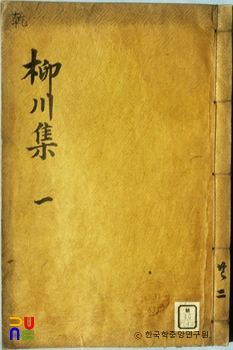 乾
柳川集 一
共二
ⓒ 한국학중앙연구원